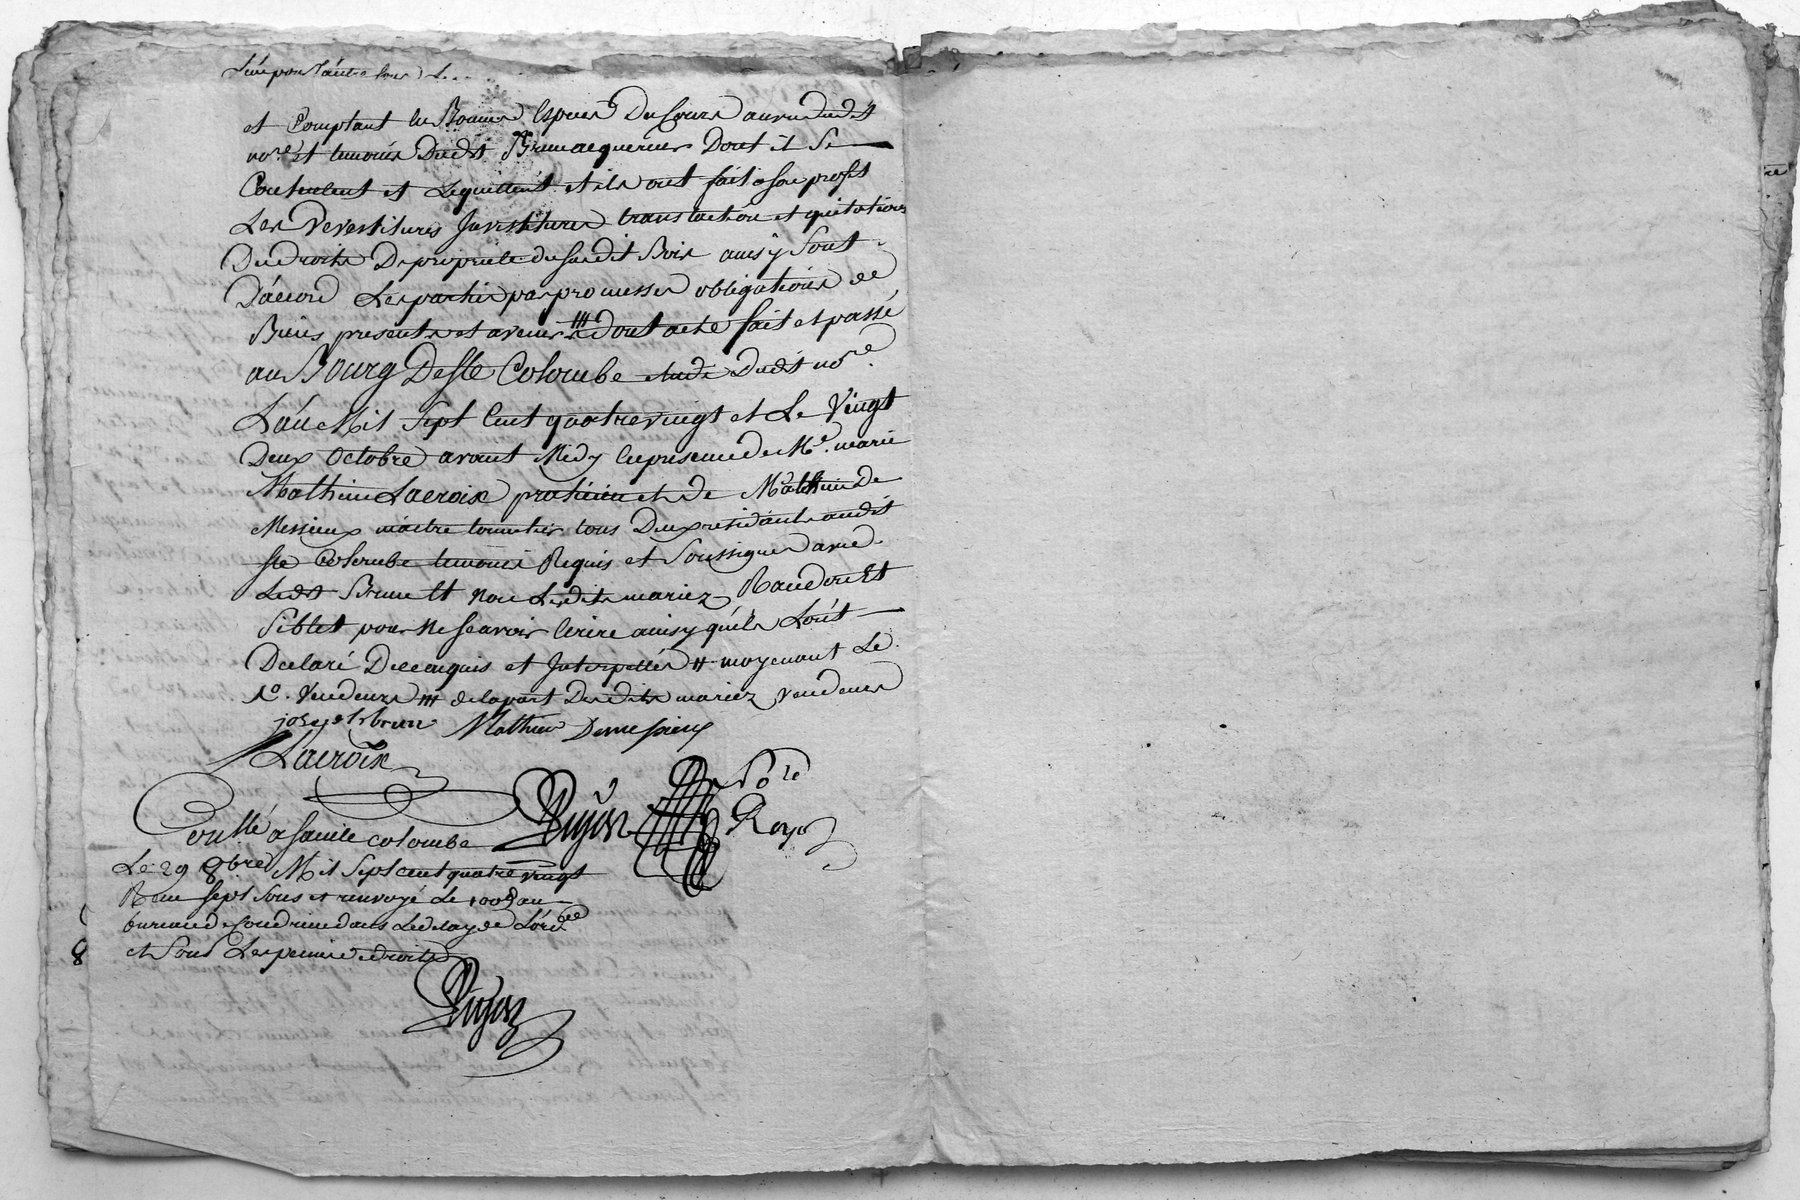 L'un pour l'autre sous
et Comptant en Bonnes Especes Du Cours au vu dudit
no.re Et temoins Dudit Brun acquereur Dont il Se
Contentent et Lequittent et ils ont fait a son profit
Les Devestitures Investitures translation et quitations
Du droits De propriete du susdit Bois ainsy Sont
D'accord Les parties par promesses obligations de
Biens presents et avenir Dont acte fait et passé
au Bourg De Ste Colombe etude Dudit no.re
L'an Mil Sept Cent quatrevingt et Le Vingt
Deux Octobre avant Midy En presence de Me. marie
Mathieu Lacroix praticien et de Mathieu de
Messieux maitre tonnelier tous Deux residants audit
Ste Colombe temoins Requis et Soussignes avec
Ledit Brun Et Non Lesdits mariez Et
Siblet pour Ne Scavoir Ecrire ainsy qu'ils L'ont
Declaré De ce enquis et Interpellés # moyenant Le
Vendeurs # de la part Desdits mariez vendeurs
joseph brun Mathieu Demessieux
Lacroix
No.re
Royal
Conllé a sainte colombe
Le 29 8bre Mil Sept cent quatre vingt
Reçu sept sous et renvoyé Le 100e au
bureau de dans Le delay de L'ord.ce
et Sous Les peines de droits
8